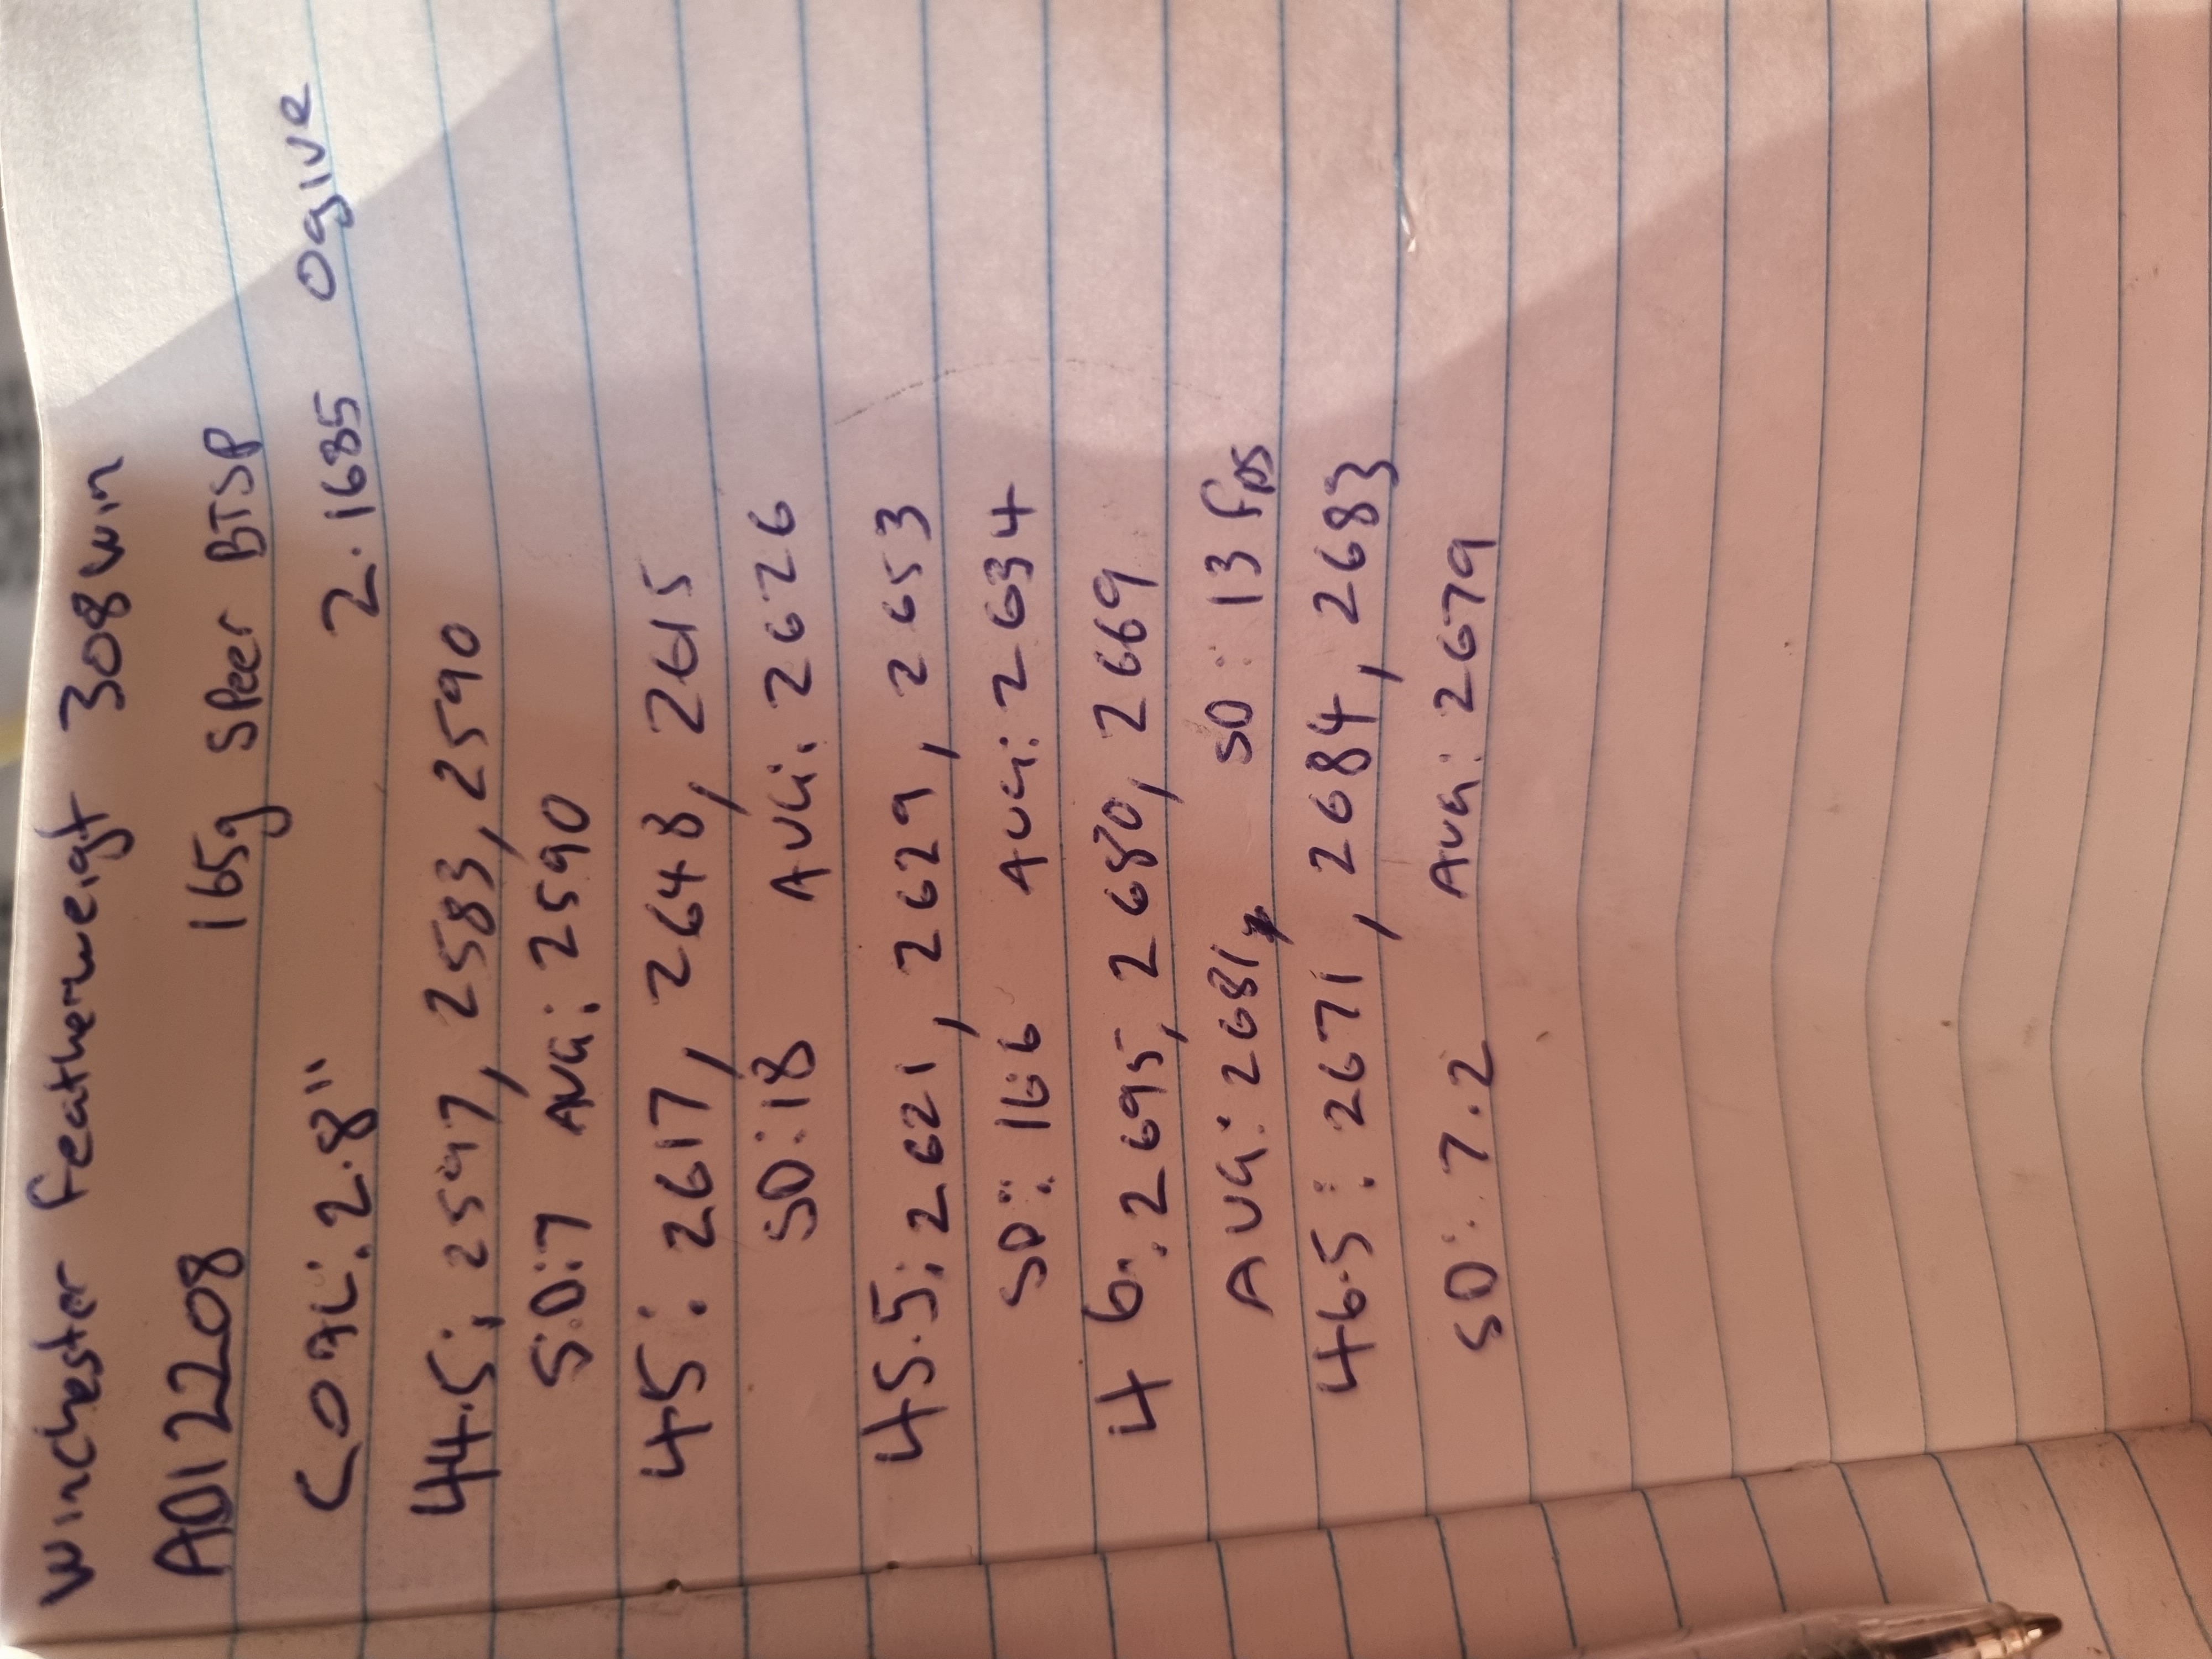 Winchester Featherweight 308win
ADI 2208 165g Speer BTSP
COAL: 2.8" 2.1685 Ogive
44.5: 2597, 2583, 2590
SD: 7 AVG: 2590
45: 2617, 2648, 2615
SD: 18 AVG: 2626
45.5: 2621, 2629, 2653
SD: 16.6 AVG: 2634
46: 2695, 2680, 2669
AVG: 2681, SD: 13 fps
46.5: 2671, 2684, 2683
SD: 7.2 AVG: 2679